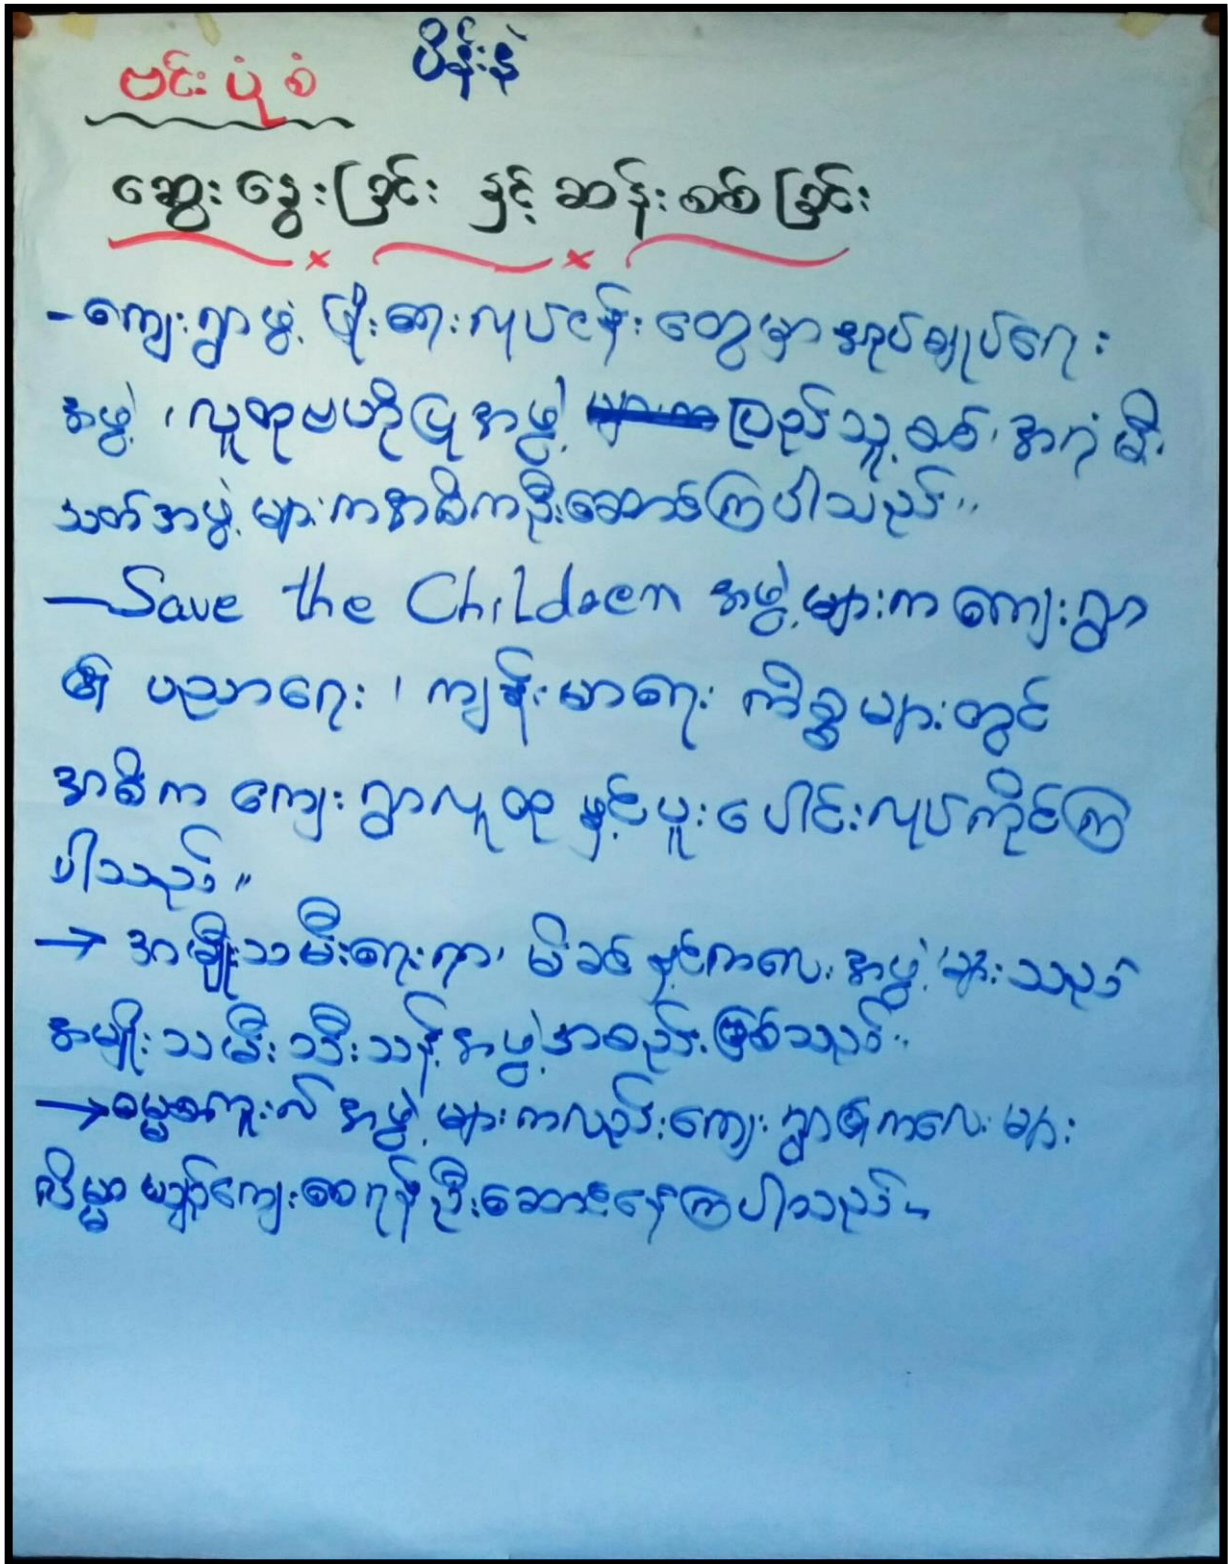 ဗင်းပုံစံ ပိန်းနဲ
ဆွေးနွေးခြင်း နှင့် ဆန်းစစ်ခြင်း
-ကျေးရွာဖွံ့ ဖြိုးရေးလုပ်ငန်းတွေမှာ အုပ်ချုပ်ရေး
အဖွဲ့၊ လူထုဗဟိုပြုအဖွဲ့ ပြည်သူ့စစ်၊ အရံမီး
သတ်အဖွဲ့များကအဓိကဦးဆောင်ကြပါသည်။
-Save the Children အဖွဲ့များက ကျေးရွာ
၏ ပညာရေး၊ ကျန်းမာရေး ကိစ္စများတွင်
အဓိက ကျေးရွာလူထု နှင့်ပူးပေါင်းလုပ်ကိုင်ကြ
ပါသည်။
→ အမျိုးသမီးရေးရာ၊ မိခင်နှင့်ကလေးအဖွဲ့များသည်
အမျိုးသမီးသီးသန့်အဖွဲ့အစည်းဖြစ်သည်။
→ဓမ္မစကူးလ်အဖွဲ့များကလည်းကျေးရွာ၏ကလေးများ
လိမ္မာယဉ်ကျေးစေရန်ဦးဆောင်နေကြပါသည်။